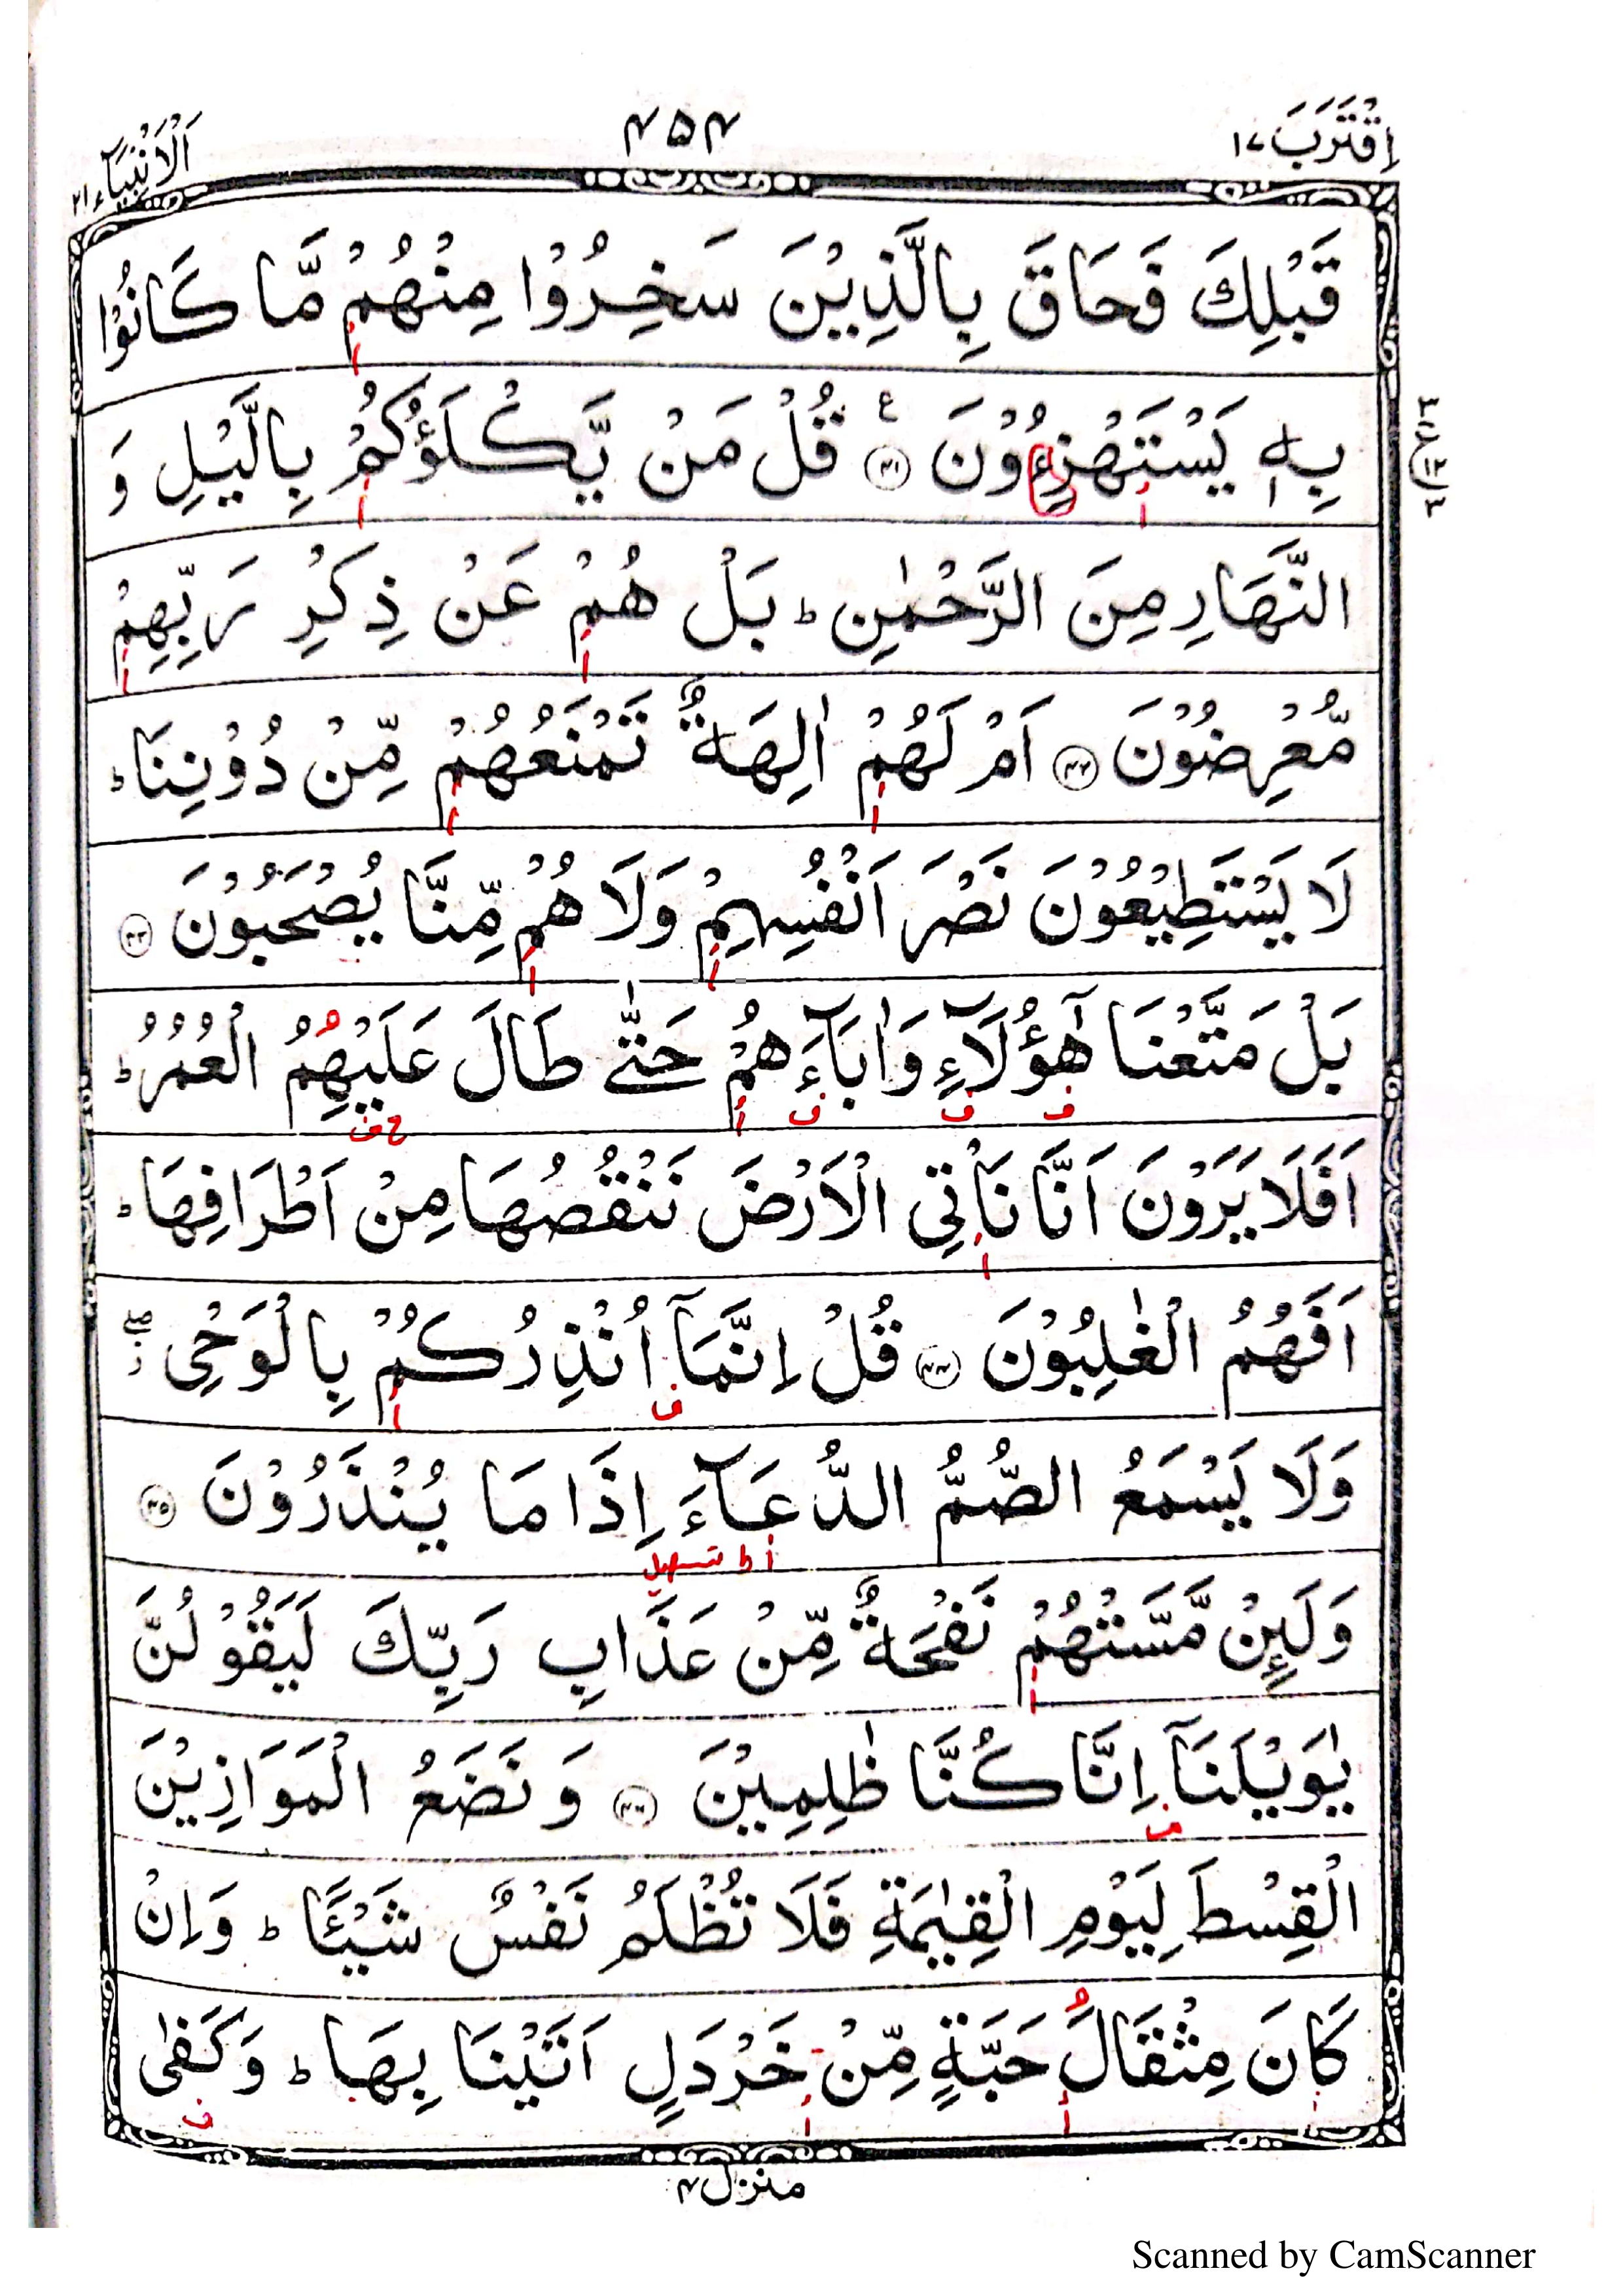 اِقْتَرَبَ ١٧
۴۵۴
اَلْاَنْۢبِيَآء ٢١
قَبْلِكَ فَحَاقَ بِالَّذِيْنَ سَخِرُوْا مِنْهُمْ مَّا كَانُوْا
بِهٖ يَسْتَهْزِءُوْنَ ﴿۴۱﴾ قُلْ مَنْ يَّكْلَؤُكُمْ بِالَّيْلِ وَ
النَّهَارِ مِنَ الرَّحْمٰنِ ؕ بَلْ هُمْ عَنْ ذِكْرِ رَبِّهِمْ
مُّعْرِضُوْنَ ﴿۴۲﴾ اَمْ لَهُمْ اٰلِهَةٌ تَمْنَعُهُمْ مِّنْ دُوْنِنَا ؕ
لَا يَسْتَطِيْعُوْنَ نَصْرَ اَنْفُسِهِمْ وَلَا هُمْ مِّنَّا يُصْحَبُوْنَ ﴿۴۳﴾
بَلْ مَتَّعْنَا هٰٓؤُلَآءِ وَاٰبَآءَهُمْ حَتّٰى طَالَ عَلَيْهِمُ الْعُمُرُ ؕ
اَفَلَا يَرَوْنَ اَنَّا نَاْتِى الْاَرْضَ نَنْقُصُهَا مِنْ اَطْرَافِهَا ؕ
اَفَهُمُ الْغٰلِبُوْنَ ﴿۴۴﴾ قُلْ اِنَّمَآ اُنْذِرُكُمْ بِالْوَحْىِ ۖ ز
وَلَا يَسْمَعُ الصُّمُّ الدُّعَآءَ اِذَا مَا يُنْذَرُوْنَ ﴿۴۵﴾
ا ط تسهيل
وَلَئِنْ مَّسَّتْهُمْ نَفْحَةٌ مِّنْ عَذَابِ رَبِّكَ لَيَقُوْلُنَّ
يٰوَيْلَنَآ اِنَّا كُنَّا ظٰلِمِيْنَ ﴿۴۶﴾ وَنَضَعُ الْمَوَازِيْنَ
الْقِسْطَ لِيَوْمِ الْقِيٰمَةِ فَلَا تُظْلَمُ نَفْسٌ شَيْـًٔا ؕ وَاِنْ
كَانَ مِثْقَالَ حَبَّةٍ مِّنْ خَرْدَلٍ اَتَيْنَا بِهَا ؕ وَكَفٰى
منزل ۴
Scanned by CamScanner